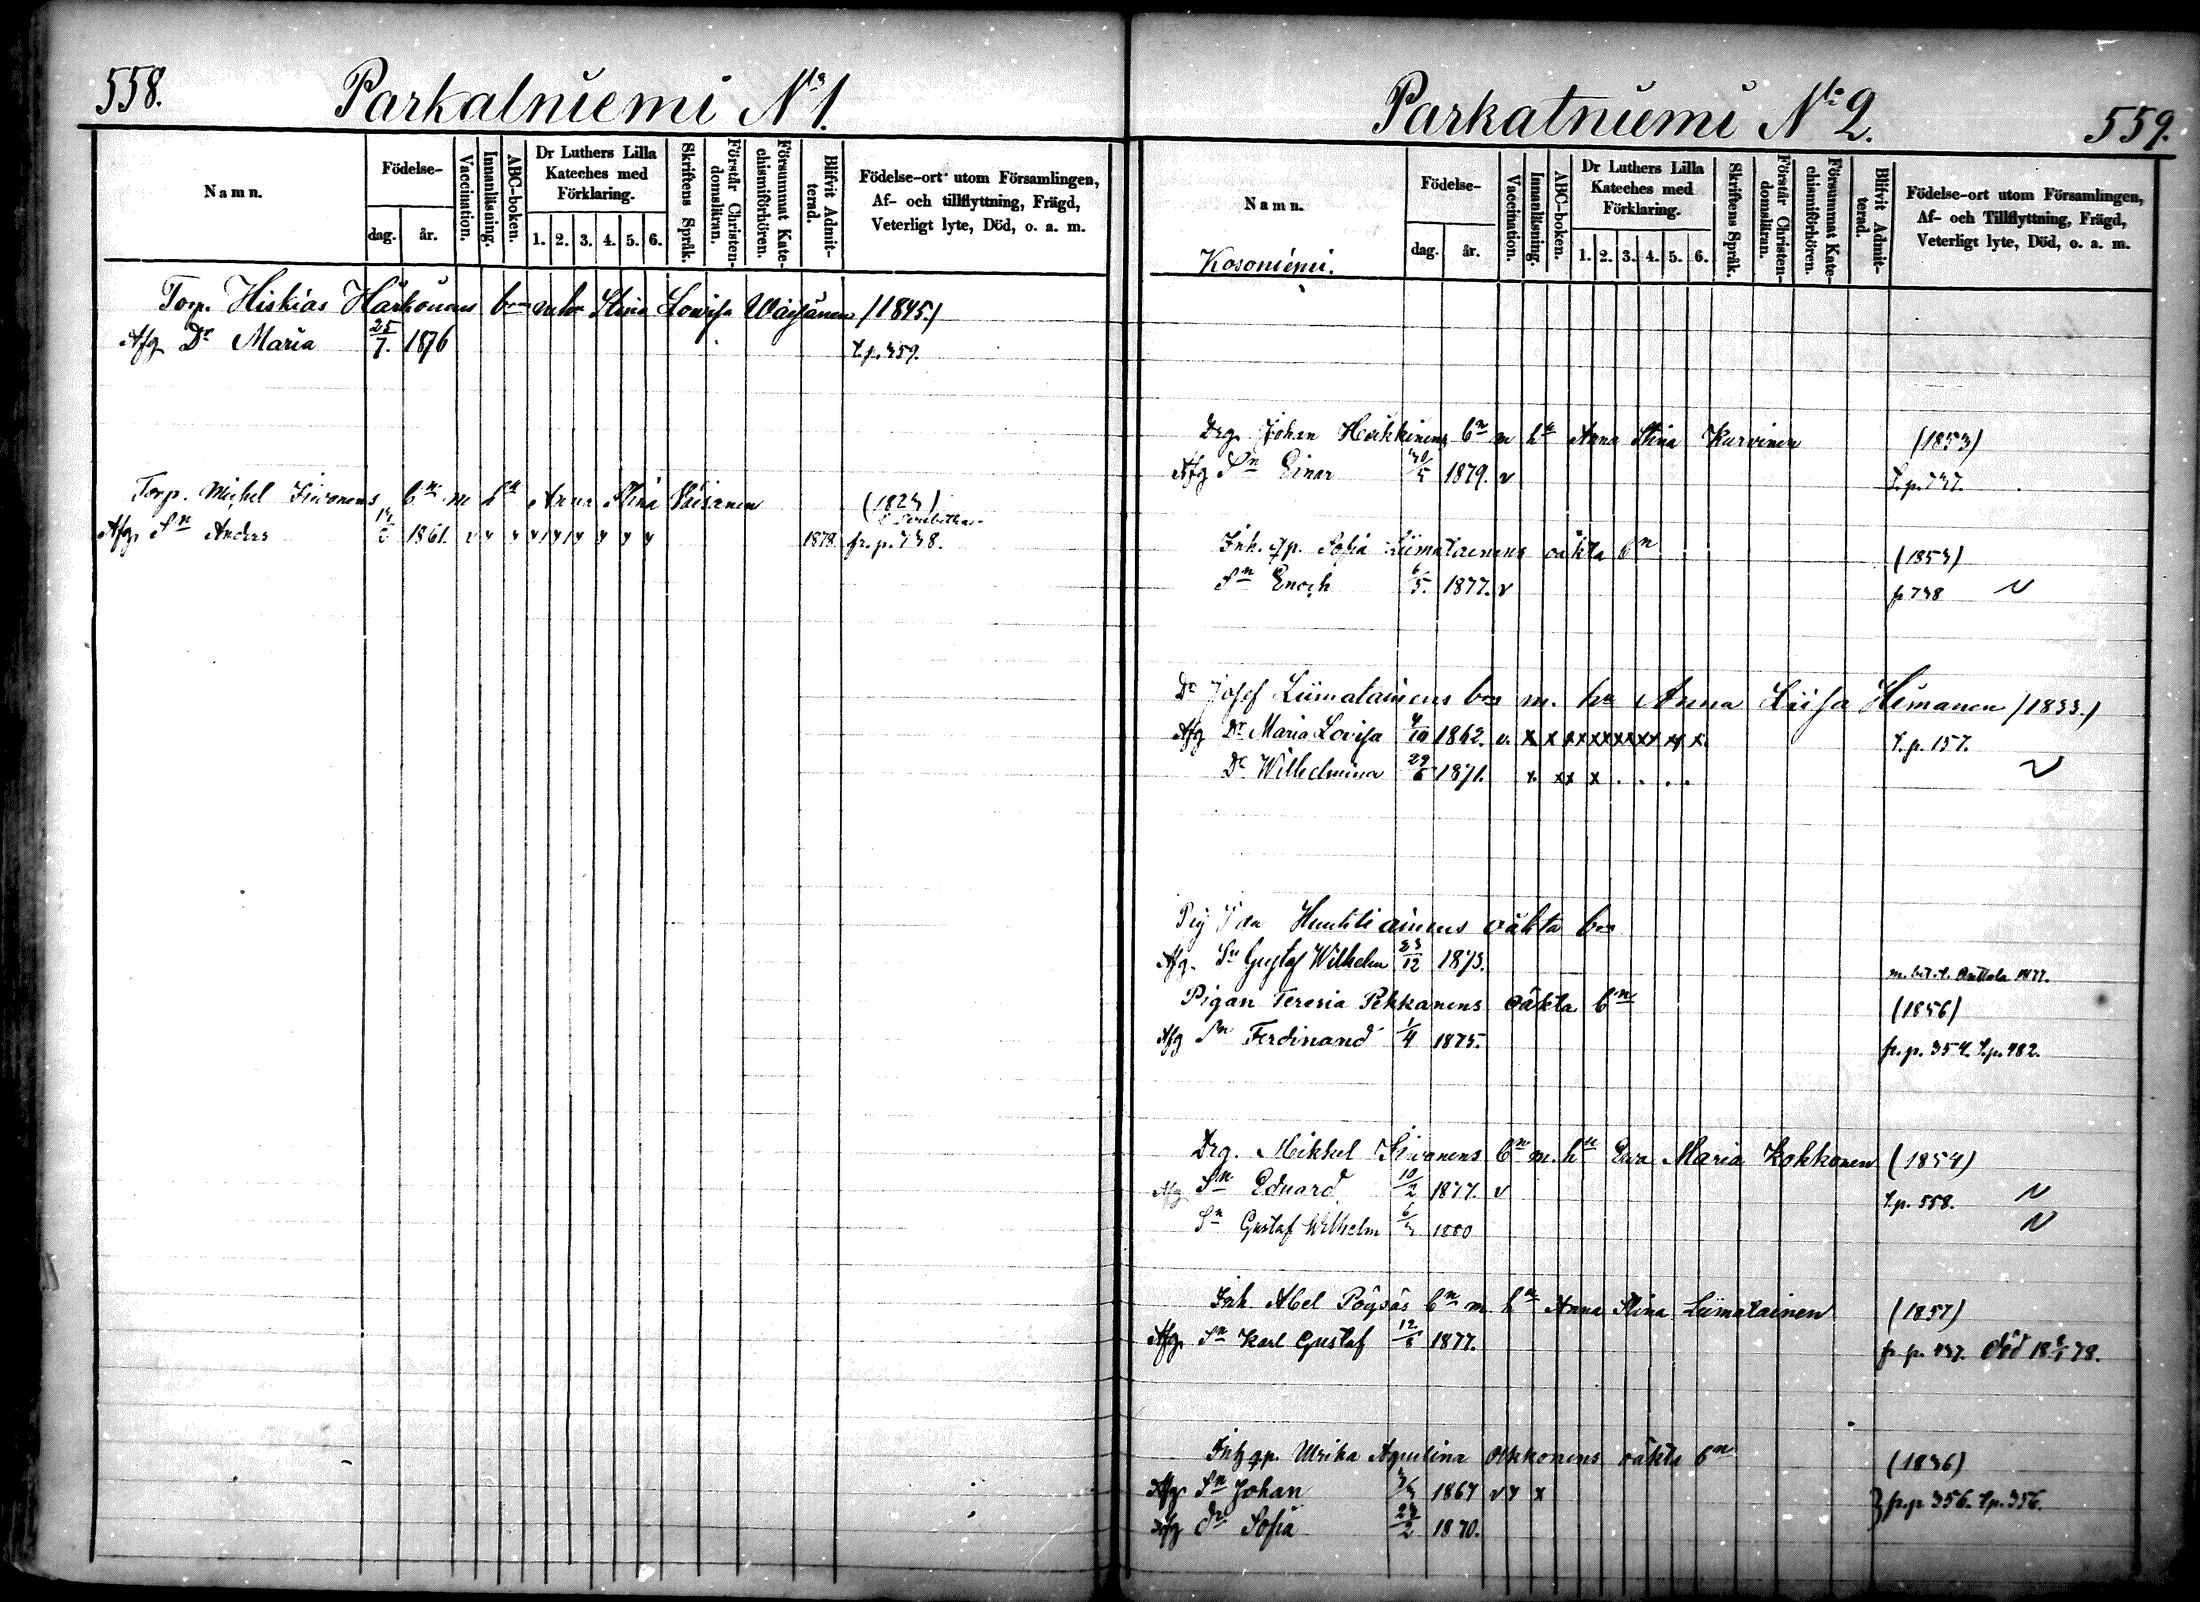 558.
Parkatniemi No 1.
Namn.
Födelse-
dag.
år.
Vaccination.
Innanläsning.
ABC-boken.
Dr Luthers Lilla Kateches med Förklaring.
1. 2. 3. 4. 5. 6.
Skriftens Språk.
Förstår Christendomsläran.
Försummat Katechismiförhören.
Blifvit Admitterad.
Födelse-ort utom Församlingen,
Af- och tillflyttning, Frägd,
Veterligt lyte, Död, o. a. m.
Torp. Hiskias Härkönens bn m hn Stina Lovisa Wäisänen (1845.)
Afg Dr Maria 25/7. 1876 T.p. 359.
Torp. Michel Siivonens bn m hn Anna Stina Väisänen (1823)
Afg. Sn Anders 1861. v v v v v v v v v 1878. fr. p. 738.
Parkatniemi No 2.
559.
Namn.
Födelse-
dag.
år.
Vaccination.
Innanläsning.
ABC-boken.
Dr Luthers Lilla Kateches med Förklaring.
1. 2. 3. 4. 5. 6.
Skriftens Språk.
Förstår Christendomsläran.
Försummat Katechismiförhören.
Blifvit Admitterad.
Födelse-ort utom Församlingen,
Af- och Tillflyttning, Frägd,
Veterligt lyte, Död, o. a. m.
Kosoniemi.
Drg. Johan Heikkinens bn m hn Anna Stina Kurvinen (1853)
Afg Sn Einar 1879. v T.p. 737.
Inh. qp. Sofia Liimatainens oäkta bn (1853)
Sn Enoch 6/5. 1877. v fr 738
Dr Josef Liimatainens bn m. hn Anna Liisa Himanen (1833.)
Afg Dr Maria Lovisa 4/10 1862. v. x x x x x x x x x x x x. T.p. 157.
Dr Wilhelmina 1871. x. x x x . . . .
Pig Ida Huuhtiainens oäkta bn
Afg. Sn Gustaf Wilhelm 23/12 1873. m. bet. t. Anttola 1877.
Pigan Teresia Pekkanens oäkta bn (1856)
Afg Sn Ferdinand 1/4 1875. fr. p. 354. T.p. 482.
Drg. Mikkel Siivonens bn m. hn Eva Maria Kokkonen (1854)
Afg Sn Eduard 10/2 1877. v T.p. 558.
Sn Gustaf Wilhelm 1880
Inh. Abel Pöysäs bn m hn Anna Stina Liimatainen (1857)
Afg. Sn Karl Gustaf 12/8 1877. fr. p. 437. Död 18 78.
Inh. qp. Ulrika Aqvilina Okkonens oäkta bn (1836)
Afg. Sn Johan 1867 v v x fr. p 356. T.p. 356.
Afg dr Sofia 1870.